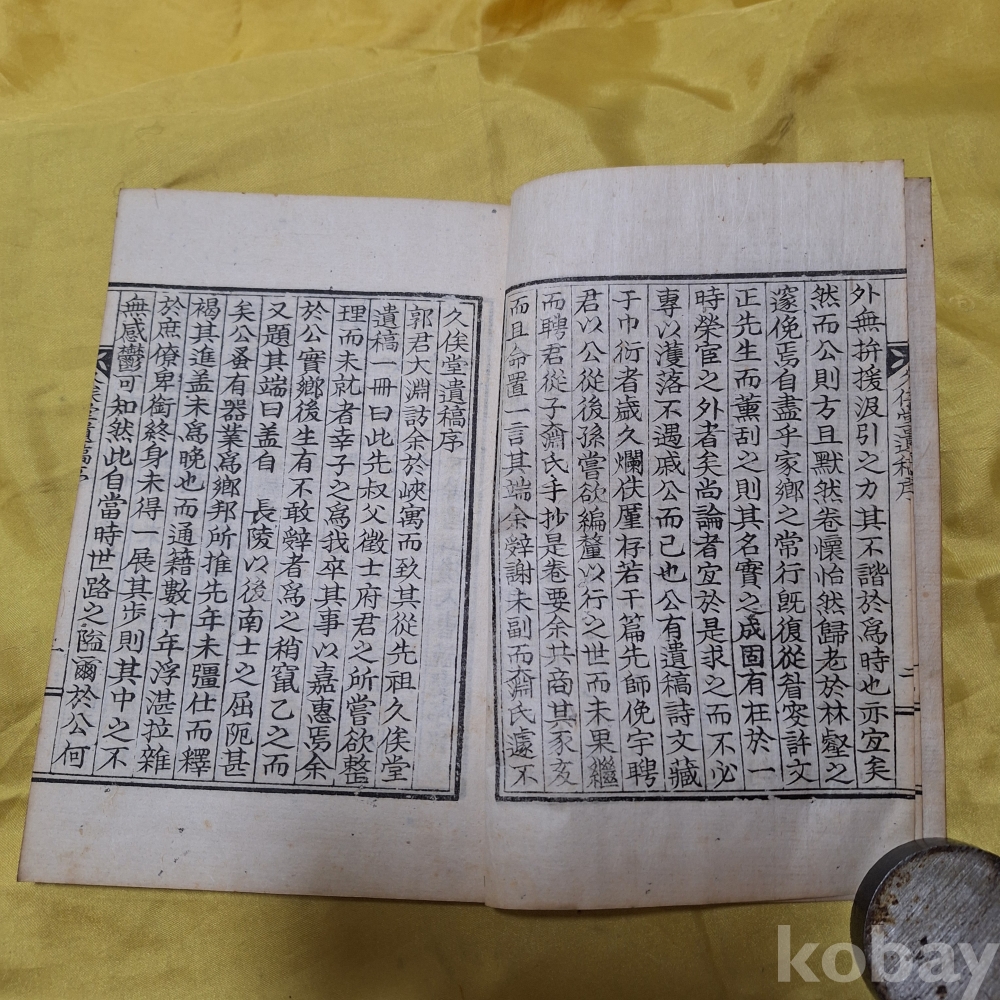 外無拚援汲引之力其不諧於爲時也亦宜矣
然而公則方且默然卷懷怡然歸老於林壑之
邃俛焉自盡乎家鄕之常行旣復從眷安許文
正先生而薰刮之則其名實之成固有在於一
時榮宦之外者矣尚論者宜於是求之而不必
專以濩落不遇戚公而已也公有遺稿詩文藏
于巾衍者歲久爛佚厪存若干篇先師俛宇聘
君以公從後孫嘗欲編釐以行之世而未果繼
而聘君從子奫氏手抄是卷要余共商其豕亥
而且命置一言其端余辤謝未副而奫氏遽不
二
久俟堂遺稿序
郭君大淵訪余於峽寓而致其從先祖久俟堂
遺稿一冊曰此先叔父徵士府君之所嘗欲整
理而未就者幸子之爲我卒其事以嘉惠焉余
於公實鄕後生有不敢辤者爲之稍竄乙之而
又題其端曰盖自 長陵以後南士之屈阨甚
矣公蚤有器業爲鄕邦所推先年未彊仕而釋
褐其進盖未爲晩也而通籍數十年浮湛拉雜
於庶僚卑銜終身未得一展其步則其中之不
無感鬱可知然此自當時世路之隘爾於公何
一
kobay